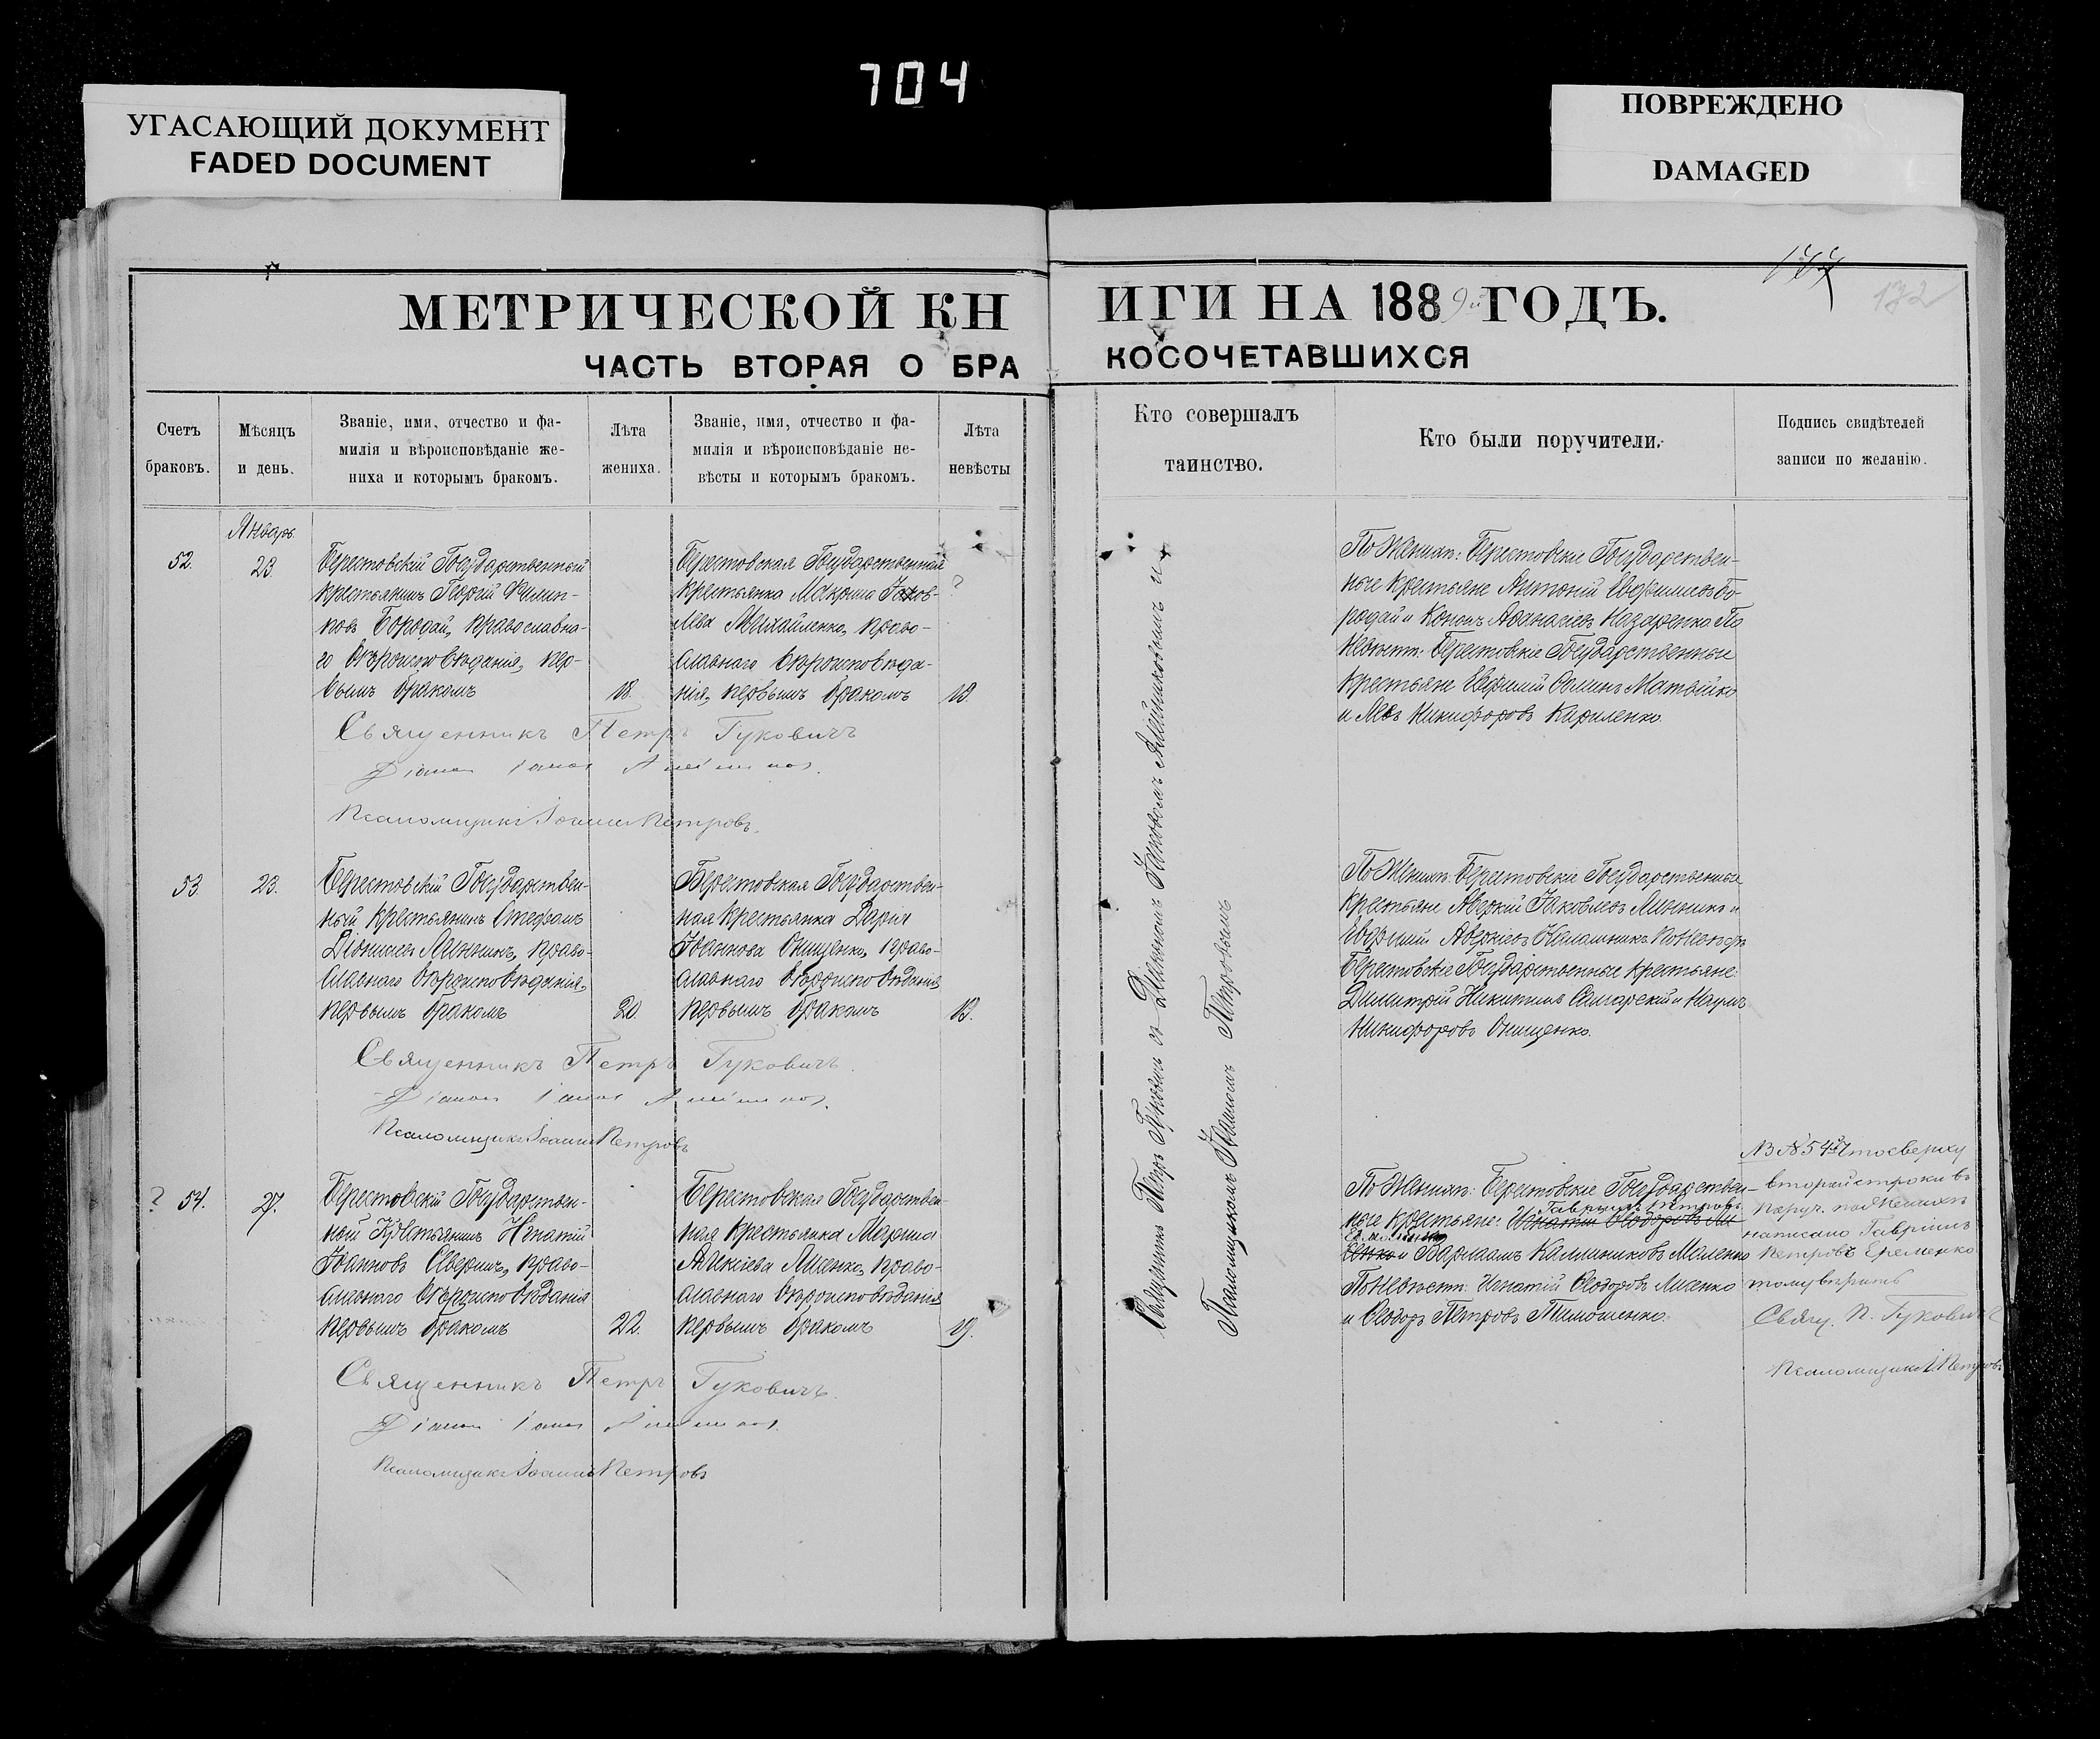 704
УГАСАЮЩИЙ ДОКУМЕНТ
FADED DOCUMENT
ПОВРЕЖДЕНО
DAMAGED
172
МЕТРИЧЕСКОЙ КН
ИГИ НА 1889й ГОДЪ.
ЧАСТЬ ВТОРАЯ О БРА
КОСОЧЕТАВШИХСЯ
Счетъ
браковъ.
Мѣсяцъ
и день.
Званіе, имя, отчество и фа-
милія и вѣроисповѣданіе же-
ниха и которымъ бракомъ.
Лѣта
жениха.
Званіе, имя, отчество и фа-
милія и вѣроисповѣданіе не-
вѣсты и которымъ бракомъ.
Лѣта
невѣсты
Кто совершалъ
таинство.
Кто были поручители.
Подпись свидѣтелей
записи по желанію.
52.
Январь
23
Берестовскій Государственный
крестьянинъ Георгій Филип-
повъ Бородай, православна-
го вѣроисповѣданія, пер-
вымъ бракомъ
18.
Берестовская Государственная
крестьянка Макрина Іаков-
лева Михайленко, право-
славнаго вѣроисповѣда-
нія, первымъ бракомъ
18.
?
Священникъ Петръ Гуковичъ
Псаломщикъ Іоаннъ Петровъ.
По Женихѣ: Берестовскіе Государствен-
ные крестьяне Антоній Евфиміевъ Бо-
родай и Кононъ Аѳанасіевъ Назаренко По
Невѣстѣ: Берестовскіе Государственные
крестьяне Евфимій Матвійко
и Левъ Никифоровъ Кириленко.
53.
23.
Берестовскій Государствен-
ный крестьянинъ Стефанъ
Діонисіевъ Линникъ, право-
славнаго вѣроисповѣданія,
первымъ бракомъ
20
Берестовская Государствен-
ная крестьянка Дарія
Іоаннова Онищенко, право-
славнаго вѣроисповѣданія
первымъ бракомъ
18.
Священникъ Петръ Гуковичъ.
Псаломщикъ Іоаннъ Петровъ
По Женихѣ: Берестовскіе Государственные
крестьяне Аверкій Іаковлевъ Линникъ и
Евфимій Аверкіевъ Калашникъ По Невѣстѣ
Берестовскіе Государственные крестьяне:
Димитрій Никитинъ Самарскій и Наумъ
Никифоровъ Онищенко.
? 54.
27.
Берестовскій Государствен-
ный Крестьянинъ Игнатій
Іоанновъ Аверинъ, право-
славнаго вѣроисповѣданія
первымъ бракомъ
22.
Берестовская Государствен-
ная крестьянка Марина
Алексіева Лисенко, право-
славнаго вѣроисповѣданія
первымъ бракомъ
19.
Священникъ Петръ Гуковичъ.
Псаломщикъ Іоаннъ Петровъ
По Женихѣ: Берестовскіе Государствен-
Гавріилъ Петровъ
ные крестьяне: Игнатій Ѳеодоровъ Ли-
Еременко
сенко и Варлаамъ Каллиниковъ Маленко
По Невѣстѣ: Игнатій Ѳеодоровъ Лисенко
и Ѳеодоръ Петровъ Тимошенко.
В № 54й Что сверху
второй строки въ
поруч. по Женихѣ
написано Гавріилъ
Петровъ Еременко
тому вѣрить
Свящ. П. Гуковичъ
Псаломщикъ І. Петровъ
Священникъ Петръ Гуковичъ съ Діакономъ и
Псаломщикомъ Іоанномъ Петровымъ